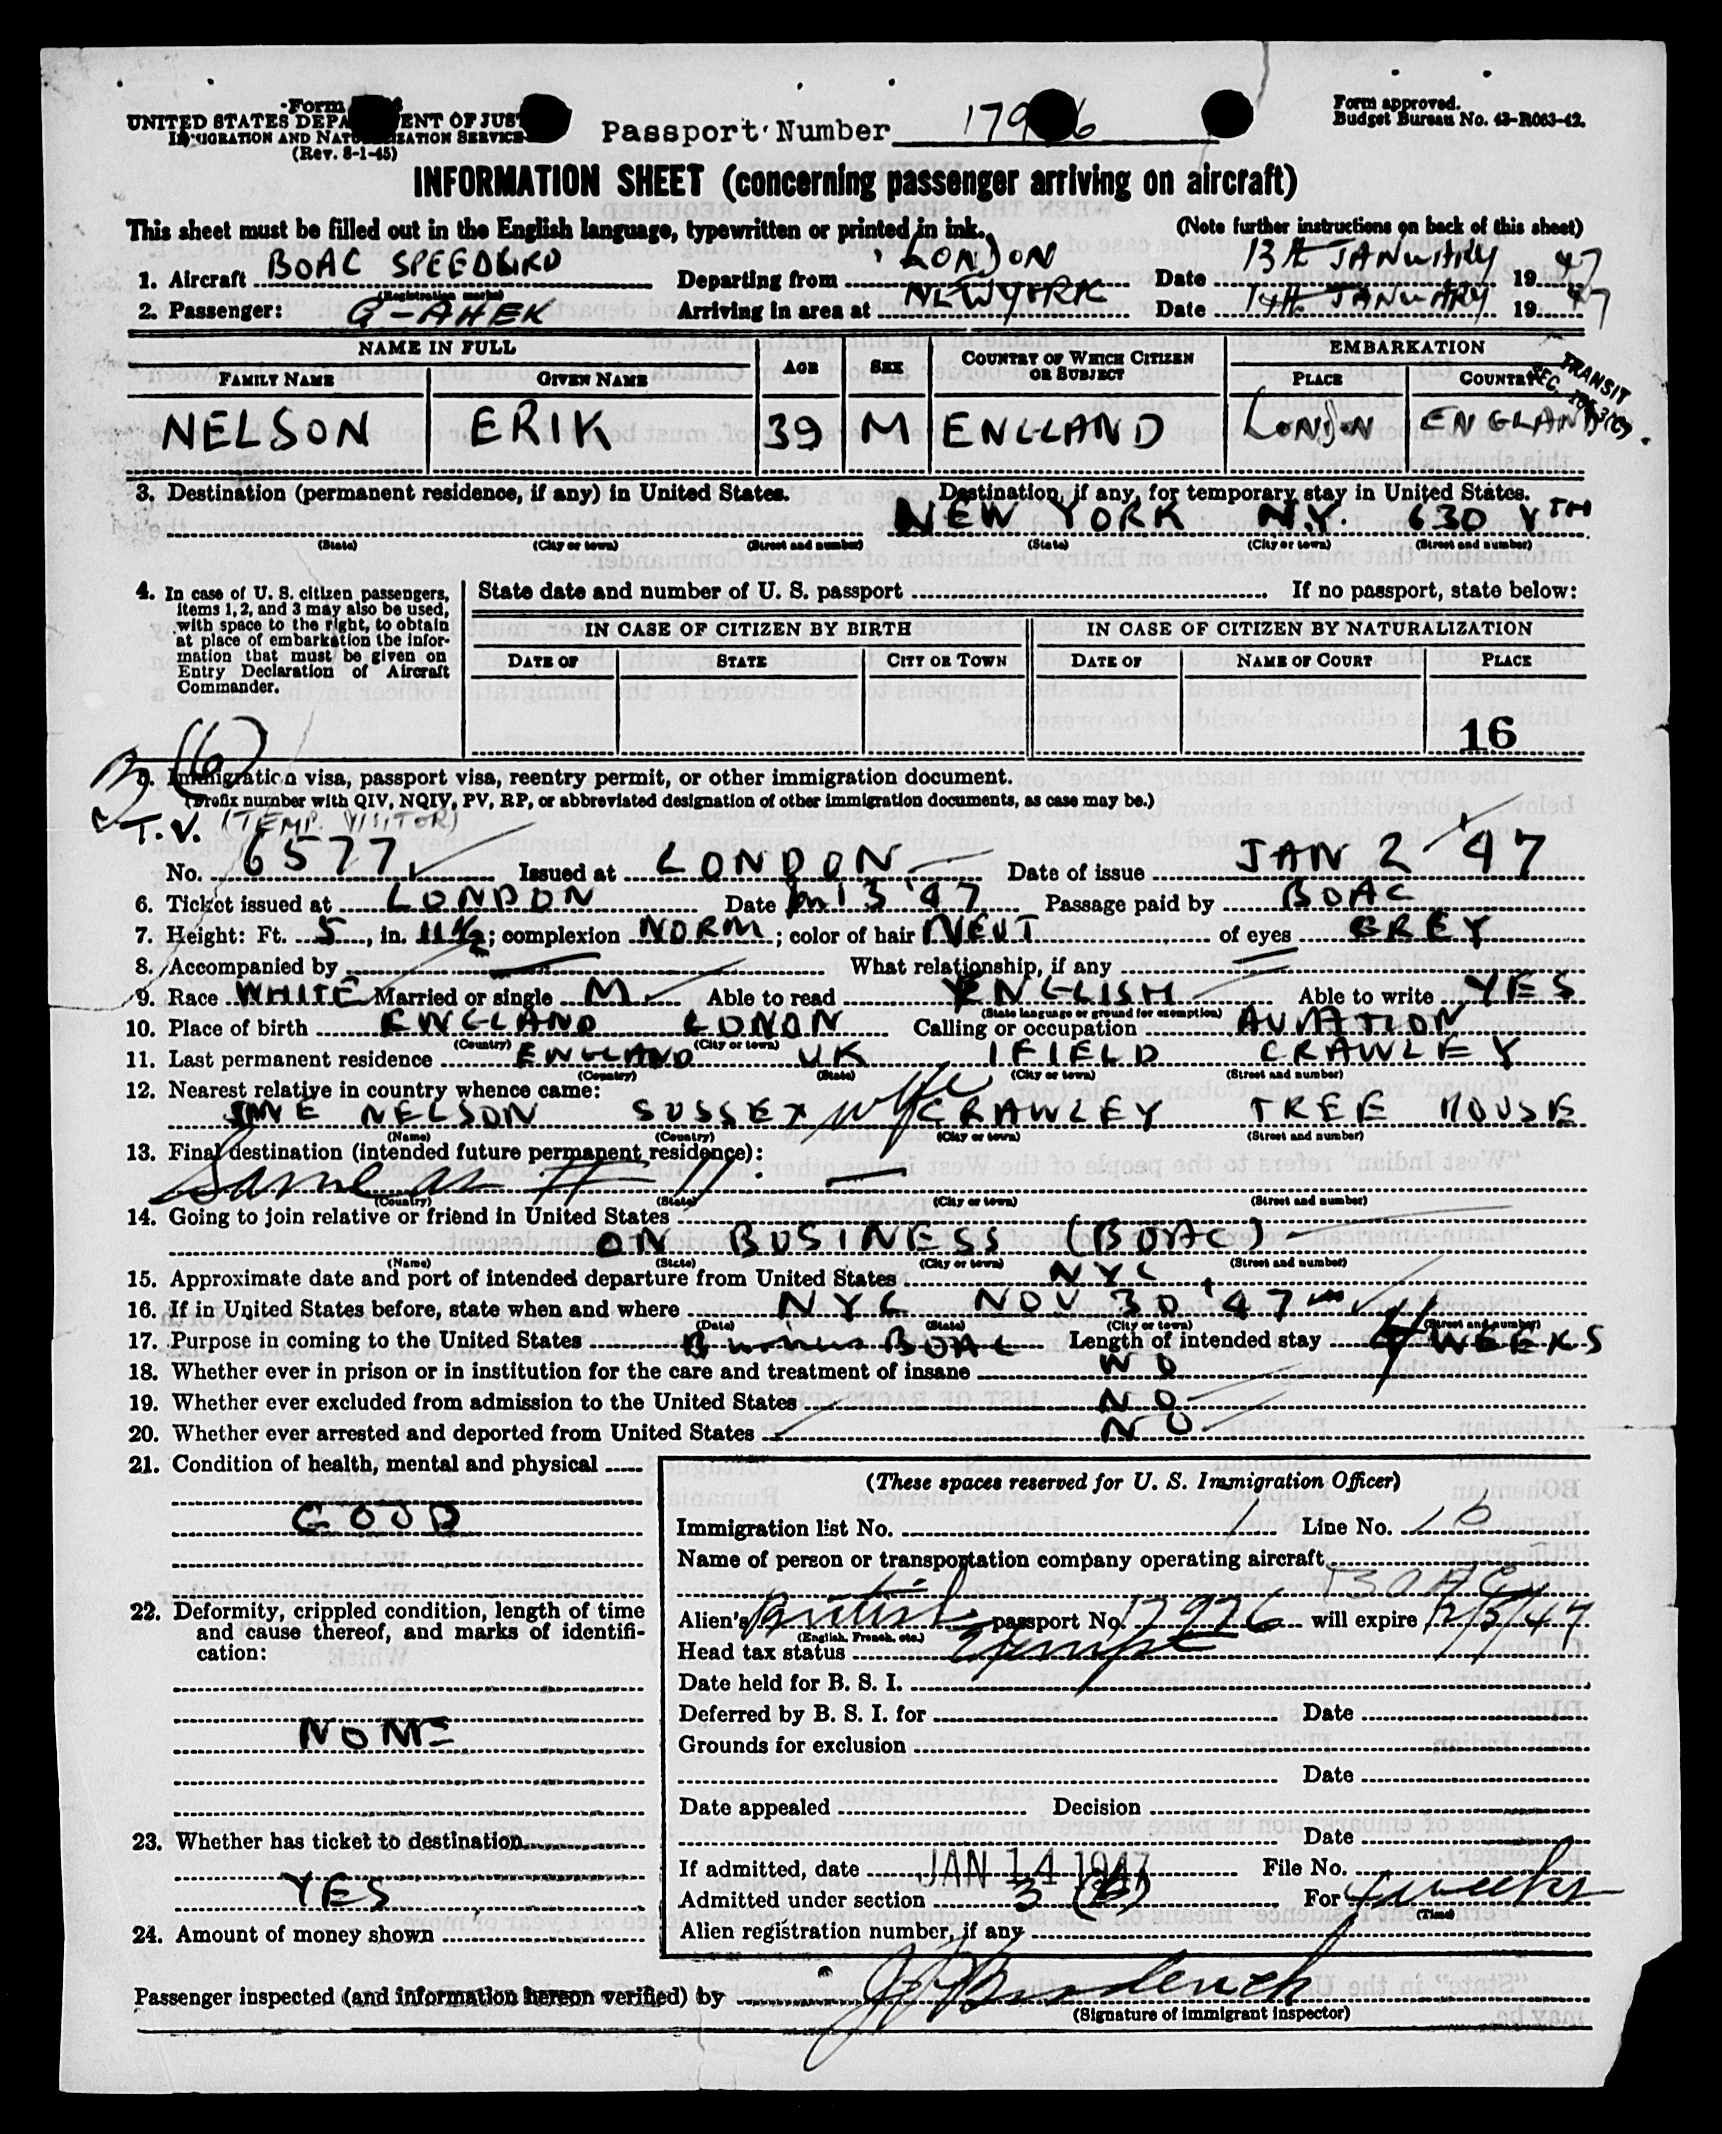 Form
UNITED STATES DEPA ENT OF JUS
IMMIGRATION AND NATURALIZATION SERVICE
(Rev. 8-1-45)
Passport Number 179 6
Form approved.
Budget Bureau No. 43-R063-42.
INFORMATION SHEET (concerning passenger arriving on aircraft)
This sheet must be filled out in the English language, typewritten or printed in ink.
(Note further instructions on back of this sheet)
1. Aircraft BOAC SPEEDBIRD Departing from LONDON Date 13th JANUARY 1947
(Registration marks)
2. Passenger: G-AHEK Arriving in area at NEW YORK Date 14th JANUARY 1947
NAME IN FULL AGE SEX COUNTRY OF WHICH CITIZEN OR SUBJECT EMBARKATION
FAMILY NAME GIVEN NAME PLACE COUNTRY
TRANSIT
SEC.
NELSON ERIK 39 M ENGLAND LONDON ENGLAND
3. Destination (permanent residence, if any) in United States. Destination, if any, for temporary stay in United States.
NEW YORK N.Y. 630 VTH
(State) (City or town) (Street and number) (State) (City or town) (Street and number)
4. In case of U. S. citizen passengers, items 1, 2, and 3 may also be used, with space to the right, to obtain at place of embarkation the information that must be given on Entry Declaration of Aircraft Commander.
State date and number of U. S. passport If no passport, state below:
IN CASE OF CITIZEN BY BIRTH IN CASE OF CITIZEN BY NATURALIZATION
DATE OF STATE CITY OR TOWN DATE OF NAME OF COURT PLACE
16
3 (6)
5. Immigration visa, passport visa, reentry permit, or other immigration document.
(Prefix number with QIV, NQIV, PV, RP, or abbreviated designation of other immigration documents, as case may be.)
T.V. (TEMP. VISITOR)
No. 6577 Issued at LONDON Date of issue JAN 2 '47
6. Ticket issued at LONDON Date Jan 13 '47 Passage paid by BOAC
7. Height: Ft. 5, in. 11½; complexion NORM; color of hair NEUT of eyes GREY
8. Accompanied by — What relationship, if any —
9. Race WHITE Married or single M. Able to read ENGLISH Able to write YES
(State language or ground for exemption)
10. Place of birth ENGLAND LONDN Calling or occupation AVIATION
(Country) (City or town)
11. Last permanent residence ENGLAND UK IFIELD CRAWLEY
(Country) (State) (City or town) (Street and number)
12. Nearest relative in country whence came:
JANE NELSON SUSSEX wife CRAWLEY TREE HOUSE
(Name) (Country) (City or town) (Street and number)
13. Final destination (intended future permanent residence):
Same as # 11. —
(Country) (State) (City or town) (Street and number)
14. Going to join relative or friend in United States
ON BUSINESS (BOAC) -
(Name) (State) (City or town) (Street and number)
15. Approximate date and port of intended departure from United States NYC
16. If in United States before, state when and where NYC NOV 30 '47
(Date) (State) (City or town) (Street and number)
17. Purpose in coming to the United States Business BOAC Length of intended stay 4 WEEKS
18. Whether ever in prison or in institution for the care and treatment of insane NO
19. Whether ever excluded from admission to the United States NO
20. Whether ever arrested and deported from United States NO
21. Condition of health, mental and physical
GOOD
22. Deformity, crippled condition, length of time and cause thereof, and marks of identification:
NONE
23. Whether has ticket to destination
YES
24. Amount of money shown
(These spaces reserved for U. S. Immigration Officer)
Immigration list No. 1 Line No. 16
Name of person or transportation company operating aircraft
BOAC
Alien's British passport No. 17926 will expire 12/5/47
(English, French, etc.)
Head tax status Exempt
Date held for B. S. I.
Deferred by B. S. I. for Date
Grounds for exclusion
Date
Date appealed Decision
Date
If admitted, date JAN 14 1947 File No.
Admitted under section 3 (6) For 4 weeks
(Time)
Alien registration number, if any
Passenger inspected (and information hereon verified) by
(Signature of immigrant inspector)